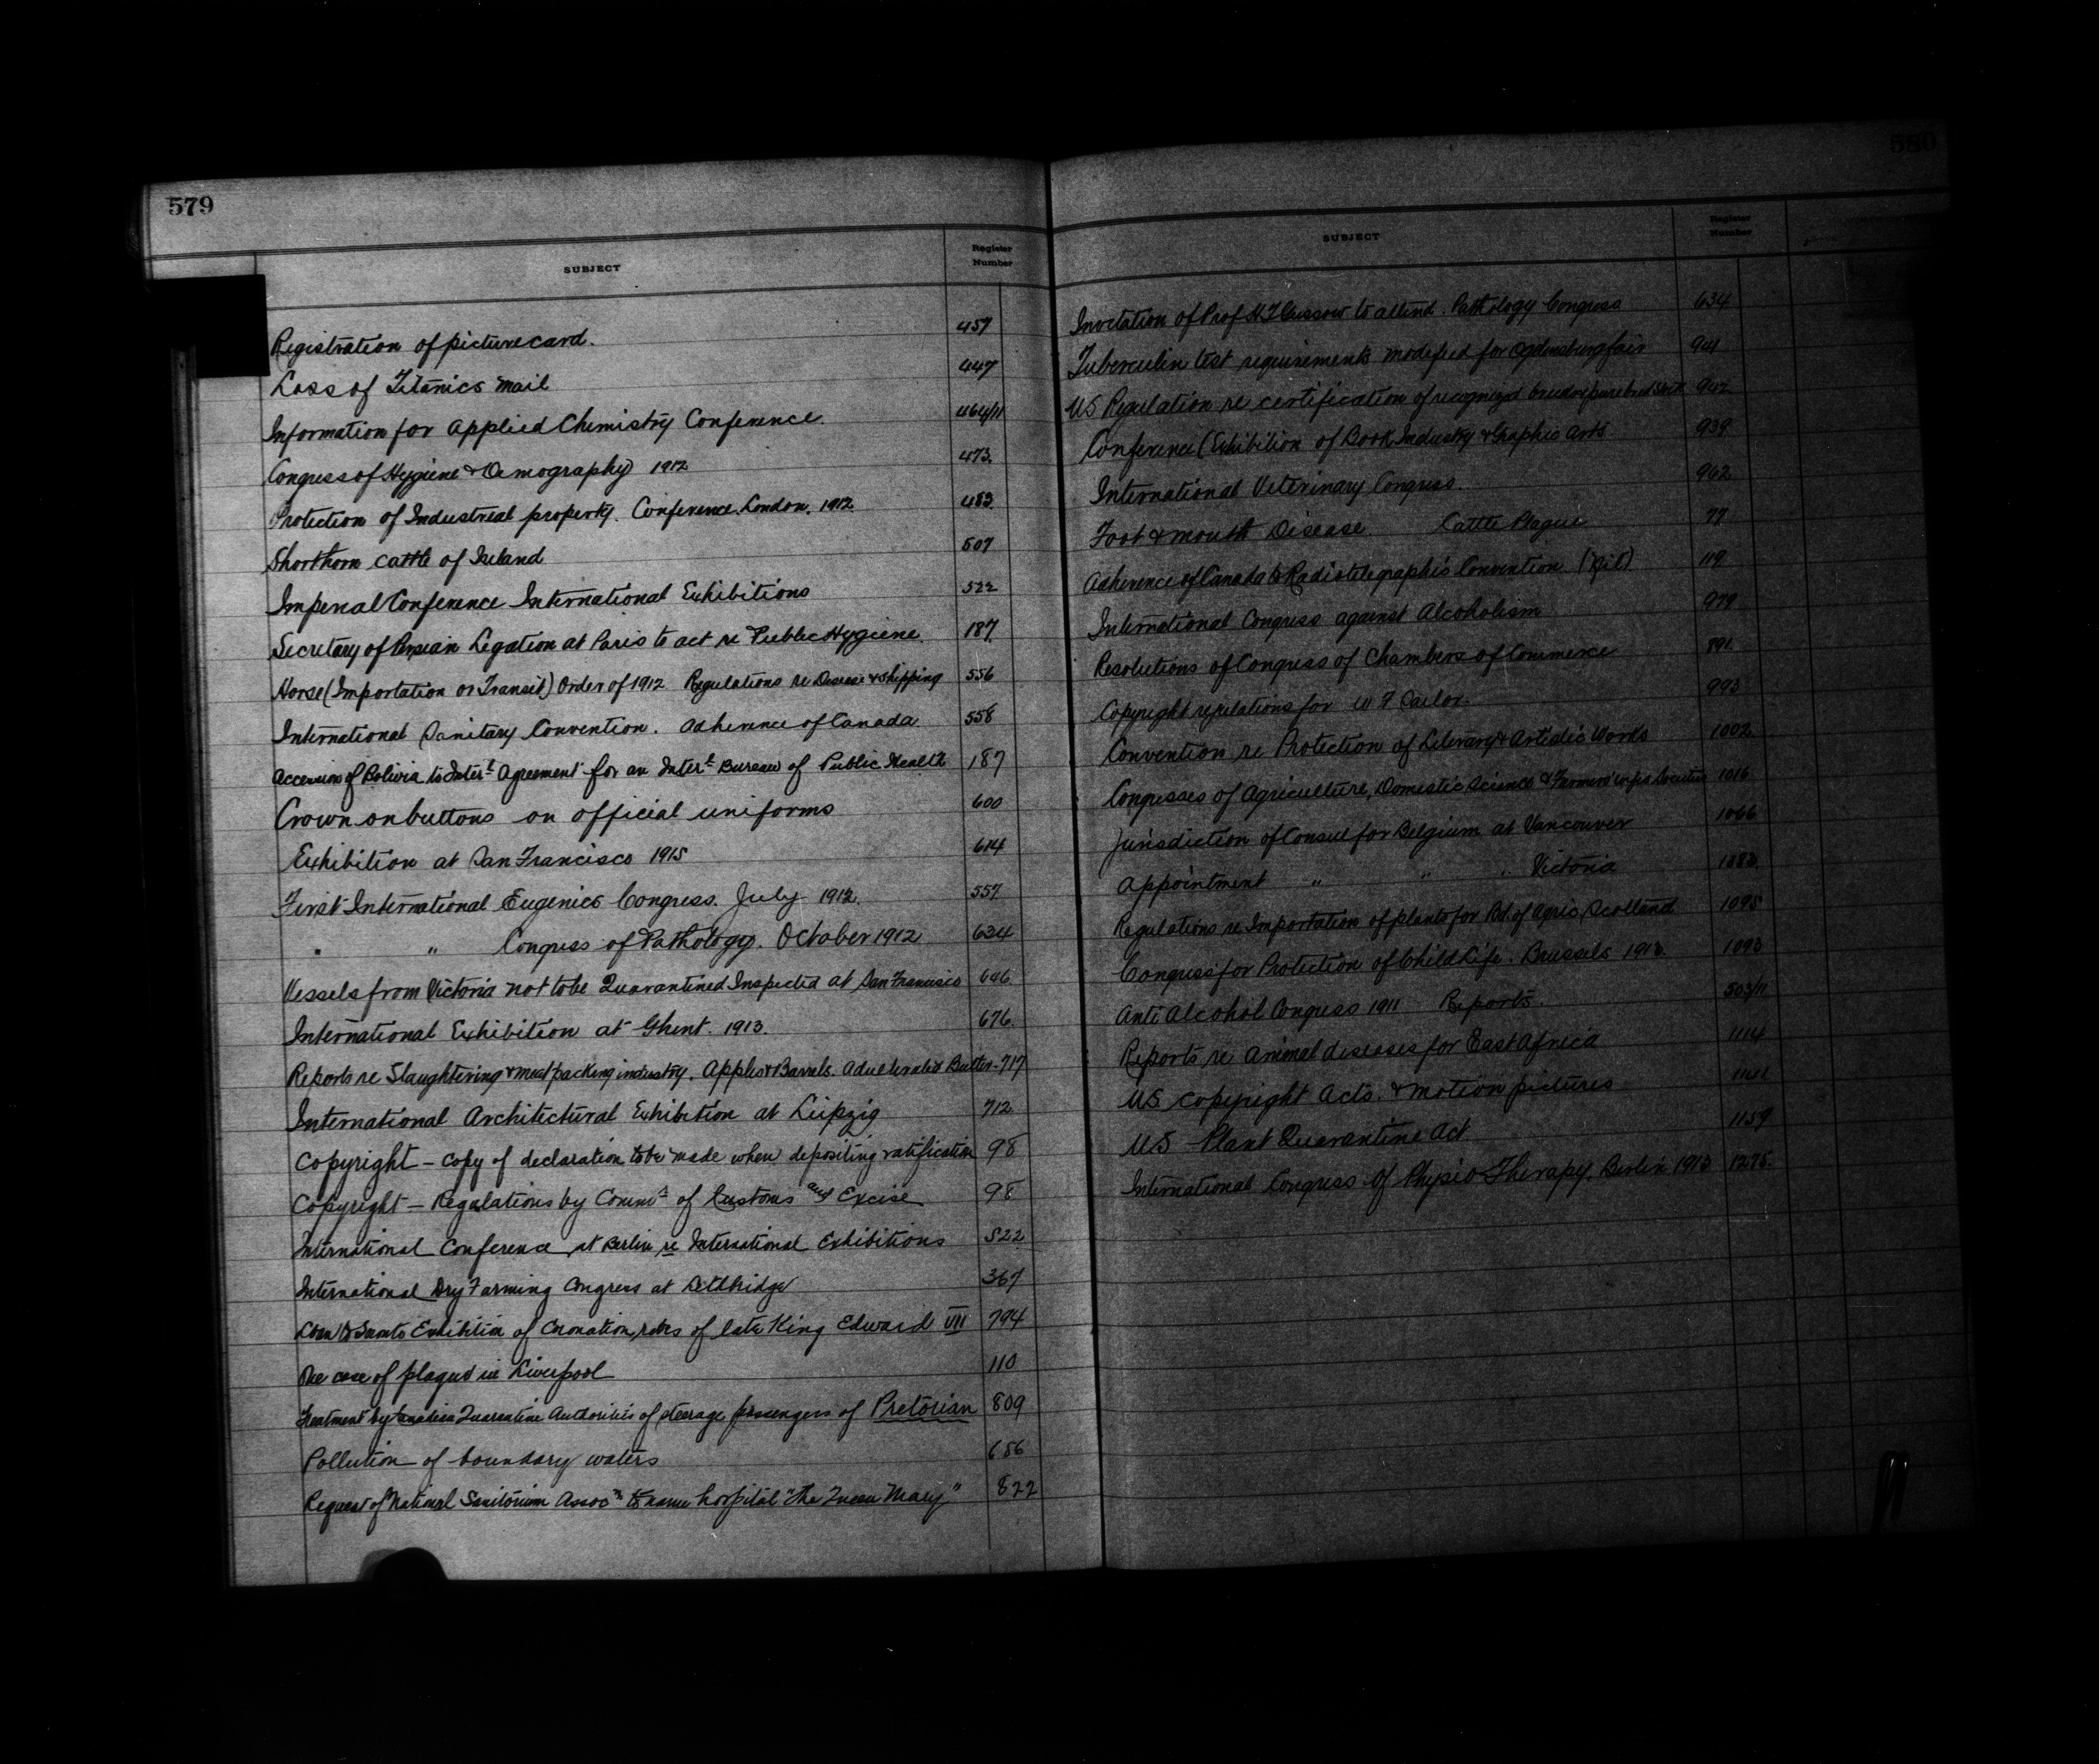 579
SUBJECT
Register
Number
Registration of picturecard. 457
Loss of Titanics mail 447
Information for Applied Chemistry Conference. 464/11
Congress of Hygiene & Demography 1912 473.
Protection of Industrial property. Conference. London. 1912. 483.
Shorthorn cattle of Ireland 507
Imperial Conference International Exhibitions 522
Secretary of Persian Legation at Paris to act re Public Hygiene. 187.
Horse (Importation or Transit) Order of 1912 Regulations re Disease & Shipping 556
International Sanitary Convention. Adherence of Canada 558
Accession of Bolivia to Inter.l Agreement for an Inter.l Bureau of Public Health 187
Crown on buttons on official uniforms 600
Exhibition at San Francisco 1915 614
First International Eugenics Congress. July 1912. 557
" " Congress of Pathology. October 1912 634
Vessels from Victoria not to be Quarantined Inspected at San Francisco 646.
International Exhibition at Ghent. 1913. 676.
Reports re Slaughtering & meat packing industry. Apples & Barrels. Adulterated Butter - 717
International Architectural Exhibition at Leipzig 712
Copyright - Copy of declaration to be made when depositing ratification 98
Copyright - Regulations by Comm.s of Customs and Excise 98
International Conference at Berlin re International Exhibitions 522
International Dry Farming Congress at Lethbridge 367
Loan to Exhibition of Coronation robes of late King Edward VII 794
One case of plague in Liverpool 110
Treatment by Canadian Quarantine Authorities of steerage passengers of Pretorian 809
Pollution of boundary waters 656
Request of National Sanitorium Assoc.n to name hospital "The Queen Mary" 822
580
SUBJECT
Register
Number
Invitation of Prof H.T. Gussow to attend. Pathology Congress 634
Tuberculin test requirements modified for Ogdensburg fair 941
US Regulation re certification of recognized breeds of purebred stock 942
Conference (Exhibition of Book Industry & Graphic Arts 939
International Veterinary Congress. 962
Foot & mouth Disease. Cattle Plague 77
Adherence of Canada to Radiotelegraphic Convention. 119.
International Congress against Alcoholism 979
Resolutions of Congress of Chambers of Commerce 891.
Copyright regulations for W F Tailor. 993
Convention re Protection of Literary & Artistic Works 1002
Congresses of Agriculture, Domestic Science & Farmers' wifes Societies 1016
Jurisdiction of Consul for Belgium at Vancouver 1066
Appointment " " " Victoria 1083.
Regulations re Importation of plants for Bd. of Agric, Scotland 1095
Congress for Protection of Child Life. Brussels 1913. 1093
Anti Alcohol Congress 1911 Reports. 503/11
Reports re Animal diseases for East Africa 1114
US copyright Acts. & motion pictures 1141
US Plant Quarantine Act 1159
International Congress of Physio Therapy. Berlin 1913 1275.